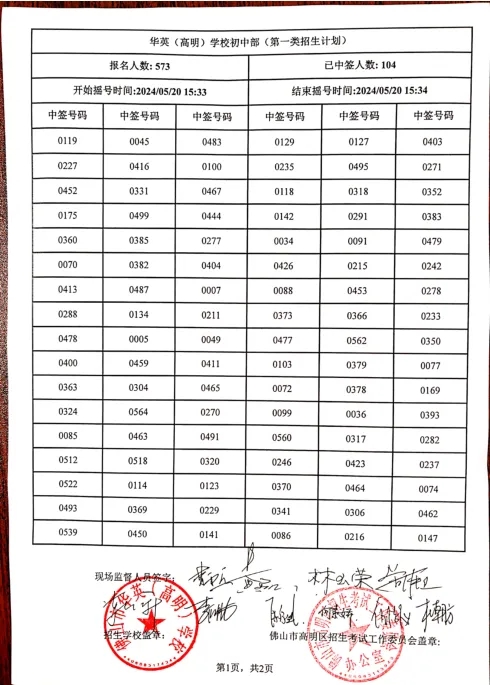 华英（高明）学校初中部（第一类招生计划）
报名人数: 573 已中签人数: 104
开始摇号时间:2024/05/20 15:33 结束摇号时间:2024/05/20 15:34
中签号码 中签号码 中签号码 中签号码 中签号码 中签号码
0119 0045 0483 0129 0127 0403
0227 0416 0100 0235 0495 0271
0452 0331 0467 0118 0318 0352
0175 0499 0444 0142 0291 0383
0360 0385 0277 0034 0091 0479
0070 0382 0404 0426 0215 0242
0413 0487 0007 0088 0453 0278
0288 0134 0211 0373 0366 0233
0478 0005 0049 0477 0562 0350
0400 0459 0411 0103 0379 0077
0363 0304 0465 0072 0378 0169
0324 0564 0270 0099 0036 0393
0085 0463 0491 0560 0317 0282
0512 0518 0320 0246 0423 0237
0522 0114 0123 0370 0464 0074
0493 0369 0229 0341 0306 0462
0539 0450 0141 0086 0216 0147
现场监督人员签字：
佛山市华英（高明）学校
招生学校盖章： 佛山市高明区招生考试工作委员会盖章：
办公室
第1页，共2页